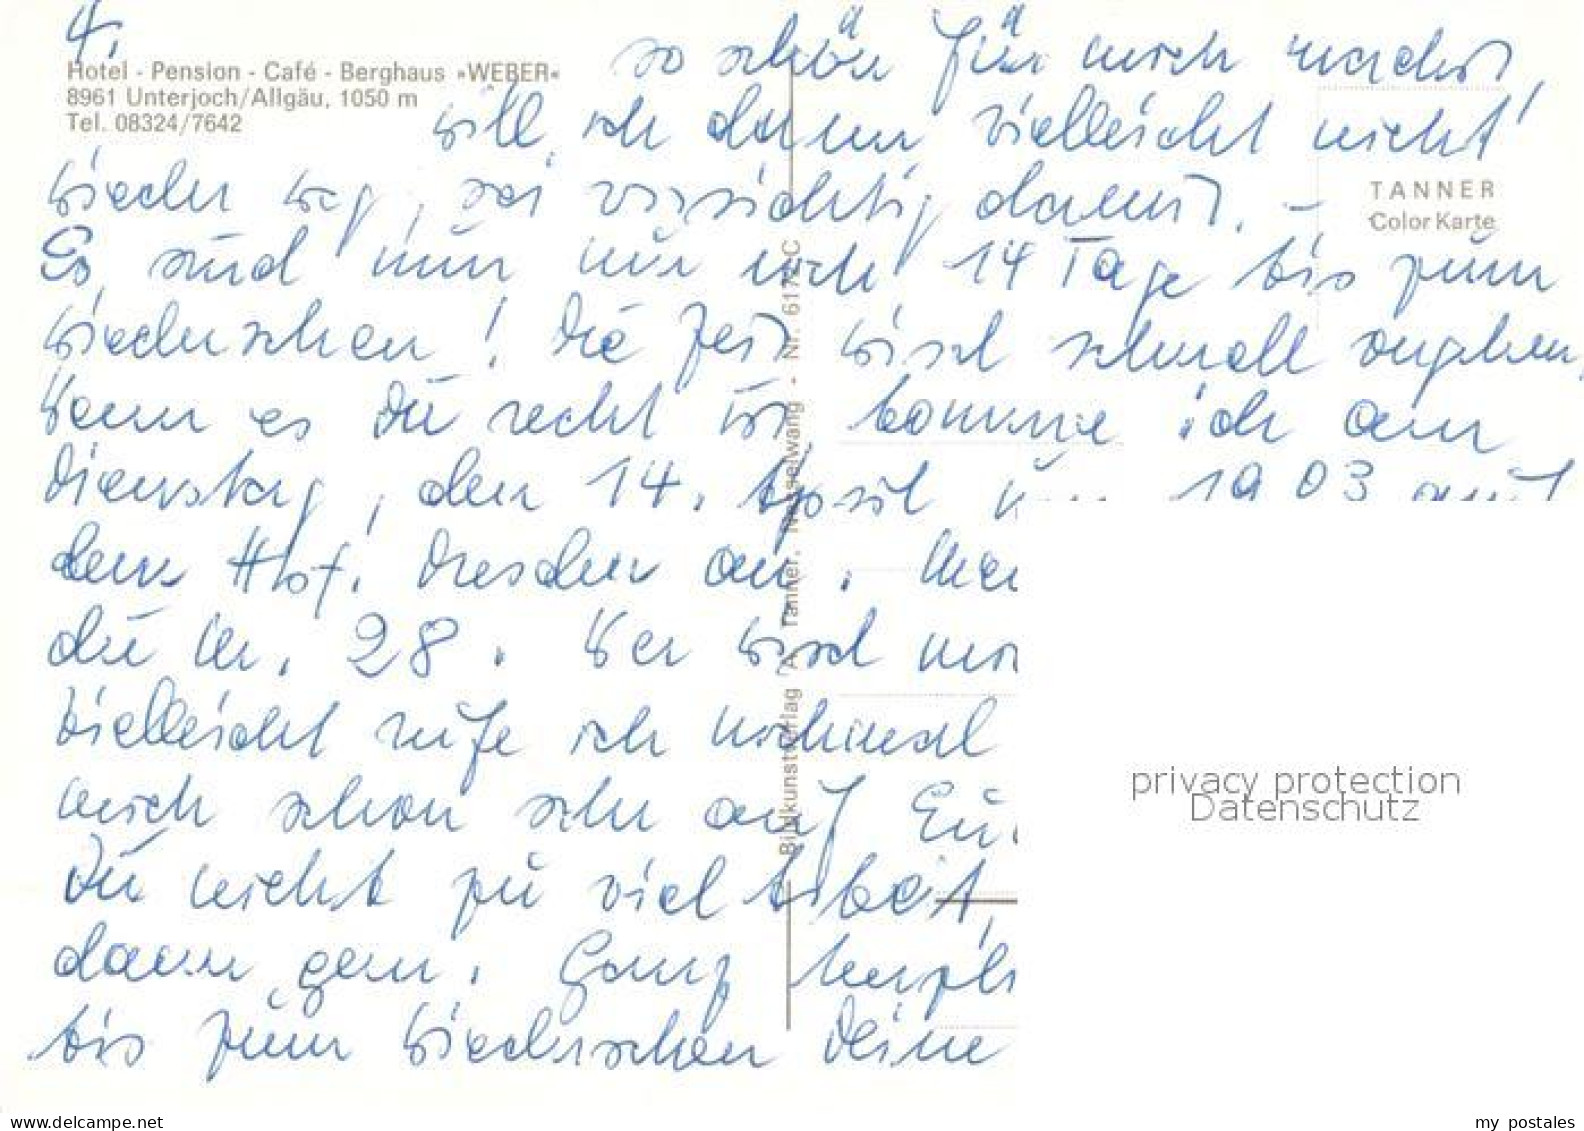 4.
Hotel - Pension - Café - Berghaus »WEBER«
8961 Unterjoch/Allgäu, 1050 m
Tel. 08324/7642
so schön für mich machst,
will ich dann vielleicht nicht
wieder weg, sei vorsichtig damit. -
TANNER
Color Karte
Es sind nun nur noch 14 Tage bis zum
Wiedersehen! Die Zeit wird schnell vergehen,
Wenn es Dir recht ist, komme ich am
Dienstag, den 14. April 19 03 auf
dem Hbf. Dresden an.
die Nr. 28. Wer wird
Vielleicht rufe ich nochmal
mich schon sehr auf
Dir nicht zu viel Arbeit,
dann gern. Ganz
bis zum Wiedersehen Deine
Bildkunstverlag A. Tanner, Nesselwang - Nr. 6172 C
privacy protection
Datenschutz
my postales